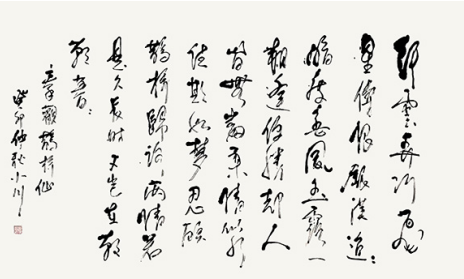 纖雲弄巧飛
星傳恨銀漢迢:
暗度金風玉露一
相逢便勝却人
間無數柔情似水
佳期如夢忍顧
鵲橋歸路兩情若
是久長時又豈在朝
朝暮:
秦觀鵲橋仙
癸卯仲秋小川